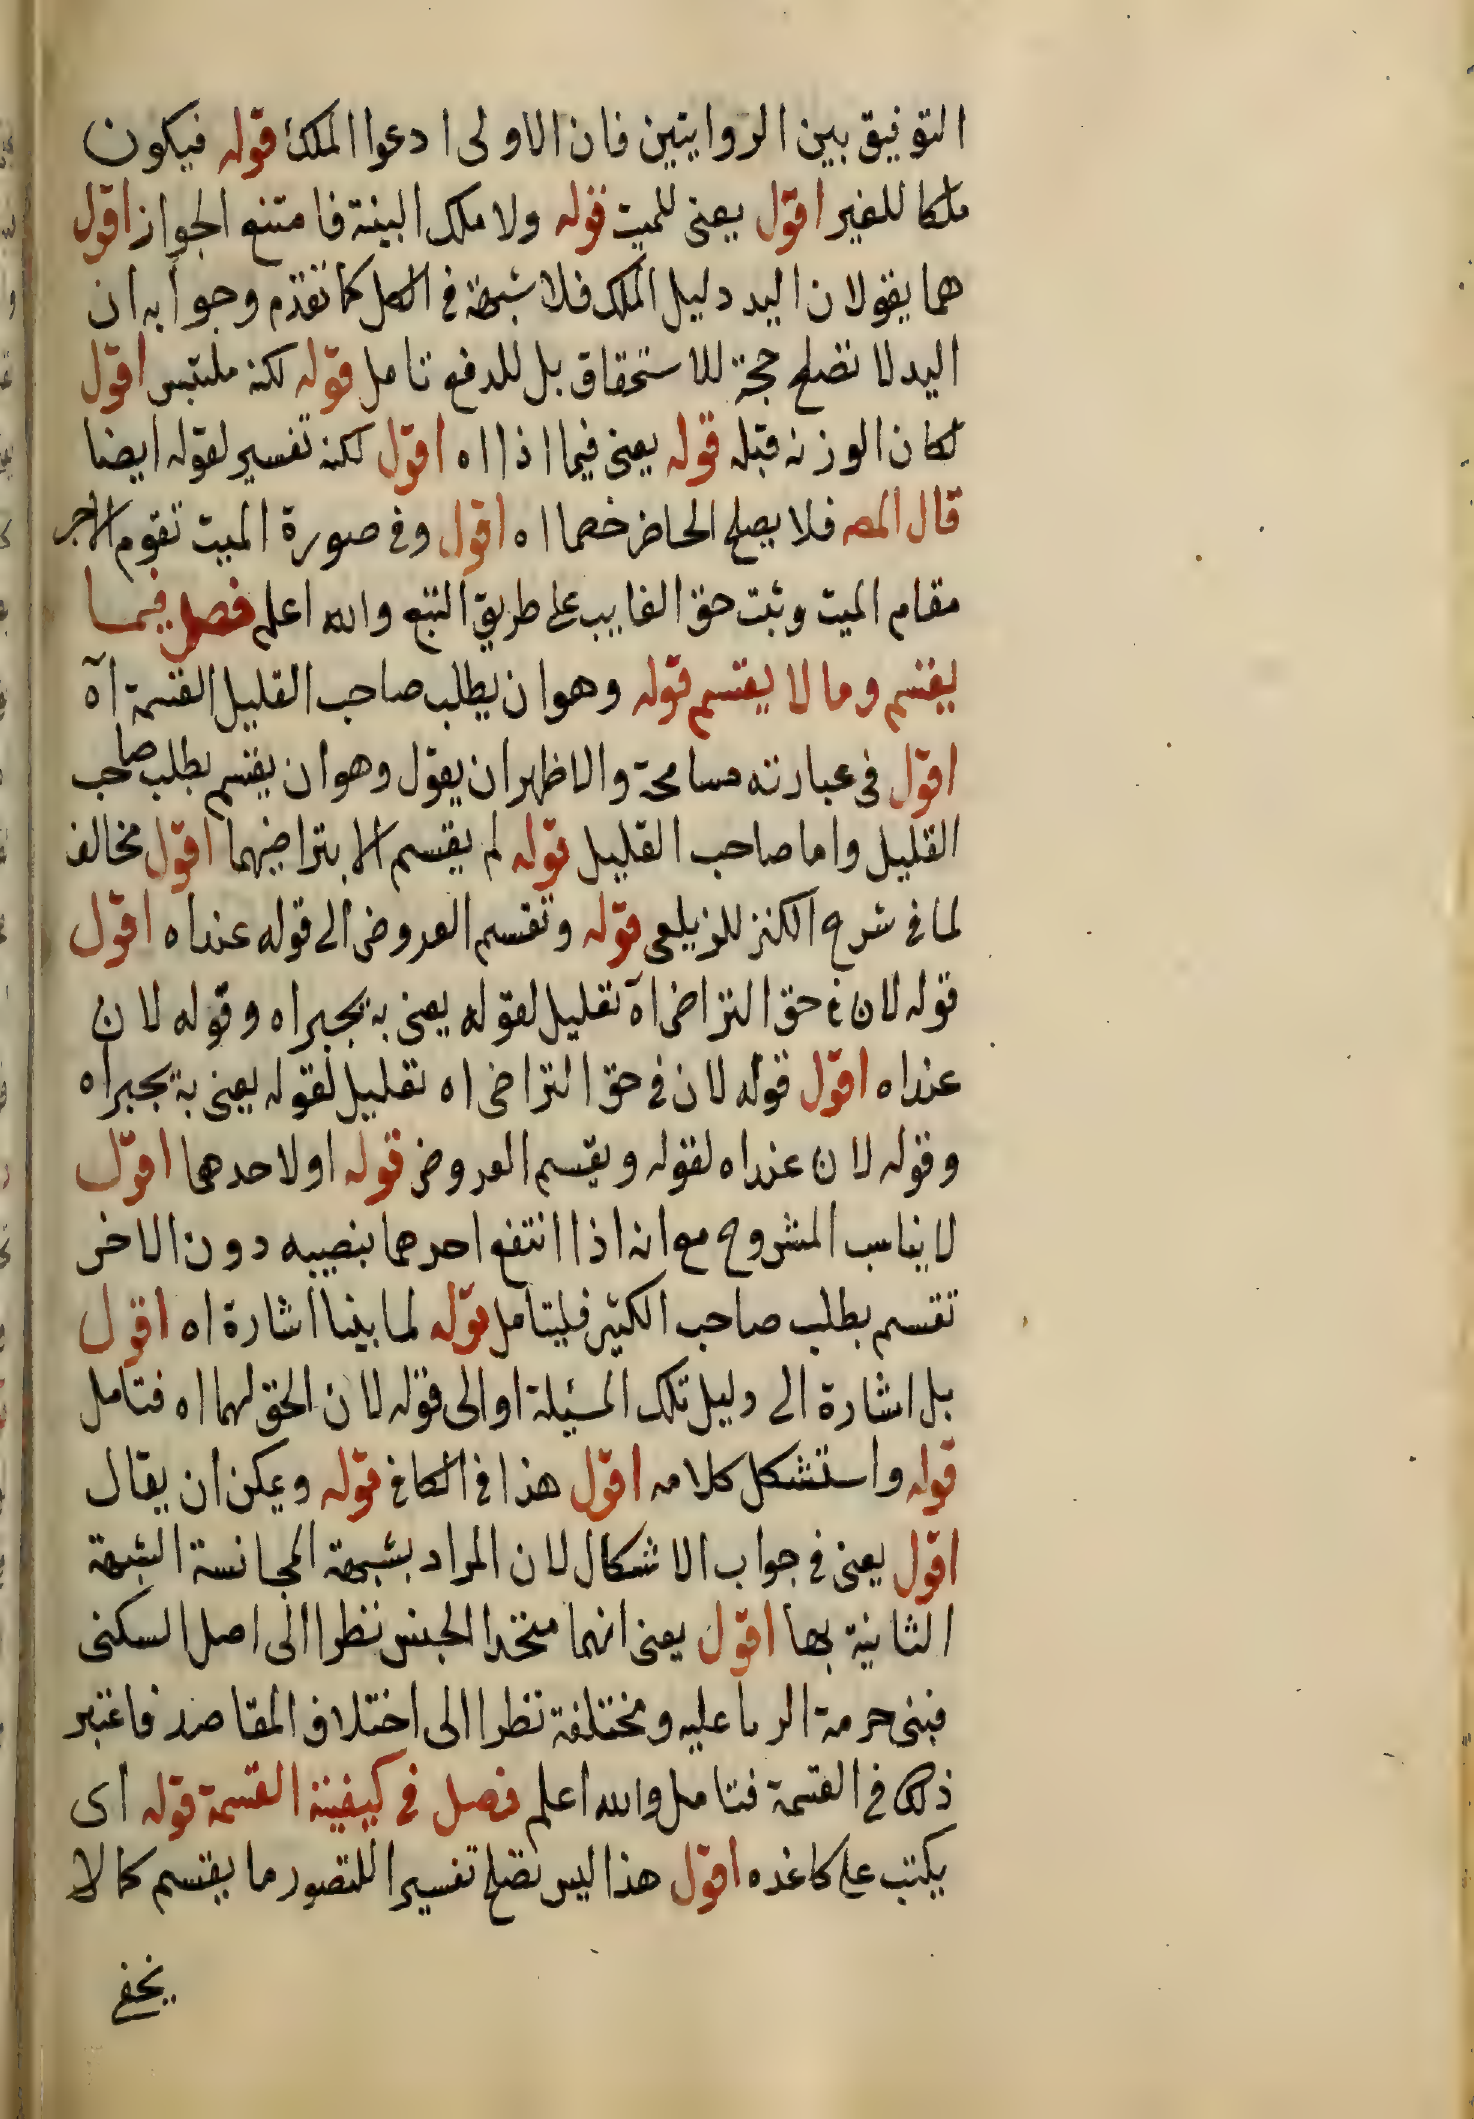 التوفيق بين الروايتين فان الاولى ادعوا الملك قوله فيكون
ملكا للغير اقول يعنى للميت قوله ولا ملك البينة فامتنع الجواز اقول
هما يقولان اليد دليل الملك فلا شبهة في الكل كما تقدم وجوابه ان
اليد لا تصلح حجة للاستحقاق بل للدفع تامل قوله لكنه ملتبس اقول
لكان الوزنه قبله قوله يعنى فيما اذا اه اقول لكنه تفسير لقوله ايضا
قال المص فلا يصلح الحاضر خصما اه اقول وفي صورة الميت تقوم الاخر
مقام الميت وثبت حق الغايب على طريق التبع والله اعلم فصل فيما
يقتسم وما لا يقتسم قوله وهو ان يطلب صاحب القليل القسمة آه
اقول في عبارته مسامحة والاظهر ان يقول وهو ان يقسم بطلب صاحب
القليل واما صاحب القليل قوله لم يقسم الا بتراضيهما اقول مخالف
لما في شرح الكنز للزيلعى قوله وتقسم العروض الى قوله عنداه اقول
قوله لان في حق التراضى آه تعليل لقوله يعنى به يجبراه وقوله لان
عنداه اقول قوله لان في حق التراضى اه تعليل لقوله يعنى به يجبراه
وقوله لان عنداه لقوله ويقسم العروض قوله اولاحدهما اقول
لا يناسب المشروح مع انه اذا انتفع احدهما بنصيبه دون الاخر
تقسم بطلب صاحب الكثير فليتامل قوله لما بينا اشارة اه اقول
بل اشارة الى دليل تلك المسئلة او الى قوله لان الحق لهما اه فتامل
قوله واستشكل كلامه اقول هذا في الكافي قوله ويمكن ان يقال
اقول يعنى في جواب الاشكال لان المراد بشبهة المجانسة الشبهة
الثانية بها اقول يعنى انهما متحدا الجنس نظرا الى اصل السكنى
فبنى حرمة الربا عليه ومختلفة نظرا الى اختلاف المقاصد فاعتبر
ذلك في القسمة فتامل والله اعلم فصل في كيفية القسمة قوله اى
يكتب على كاغده اقول هذا ليس تصلح تفسيرا للتصور ما يقتسم كما لا
يخفى